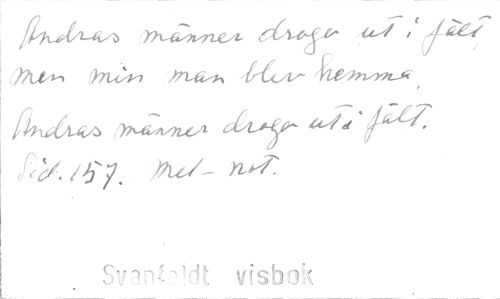 Andras männer drogo ut i fält,
men min man blev hemma.
Andras männer drogo ut i fält.
Sid. 157. Mel-not.
Svanfeldt visbok